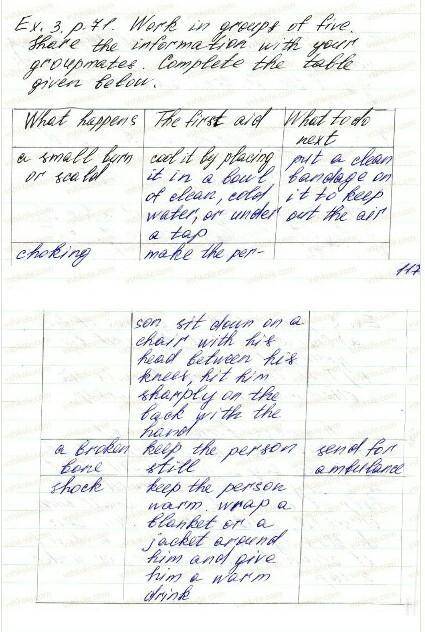 Ex. 3. p. 71. Work in groups of five.
Share the information with your
groupmates. Complete the table
given below.
What happens
The first aid
What to do
next
a small burn
or scald
cool it by placing
it in a bowl
of clean, cold
water, or under
a tap
put a clean
bandage on
it to keep
out the air
choking
make the per-
117
son sit down on a
chair with his
head between his
knees, hit him
sharply on the
back with the
hand
a broken
bone
keep the person
still
send for
ambulance
shock
keep the person
warm. wrap a
blanket or a
jacket around
him and give
him a warm
drink